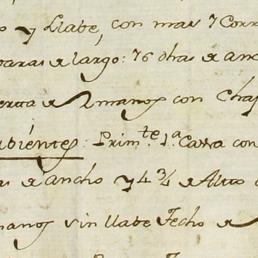 y Llabe, con mas 7 Corr
baras de largo: 76 dhas de anc
de Romanos con Chap
bientes: Prim.te 1.a Caxa con
de ancho y 4 3/4 de Alto
manos sin llabe Techo de